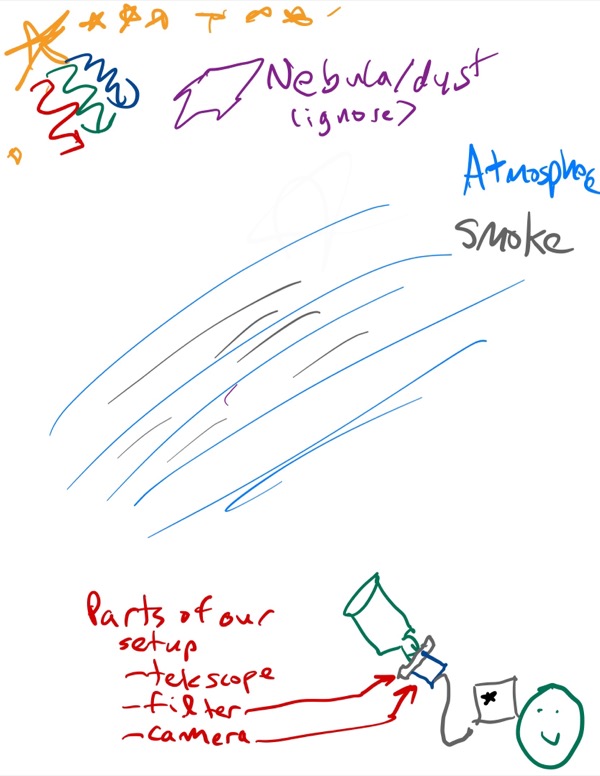 Nebula/dust
(ignose)
Atmosphee
Smoke
Parts of our
setup
- telescope
- filter
- camera